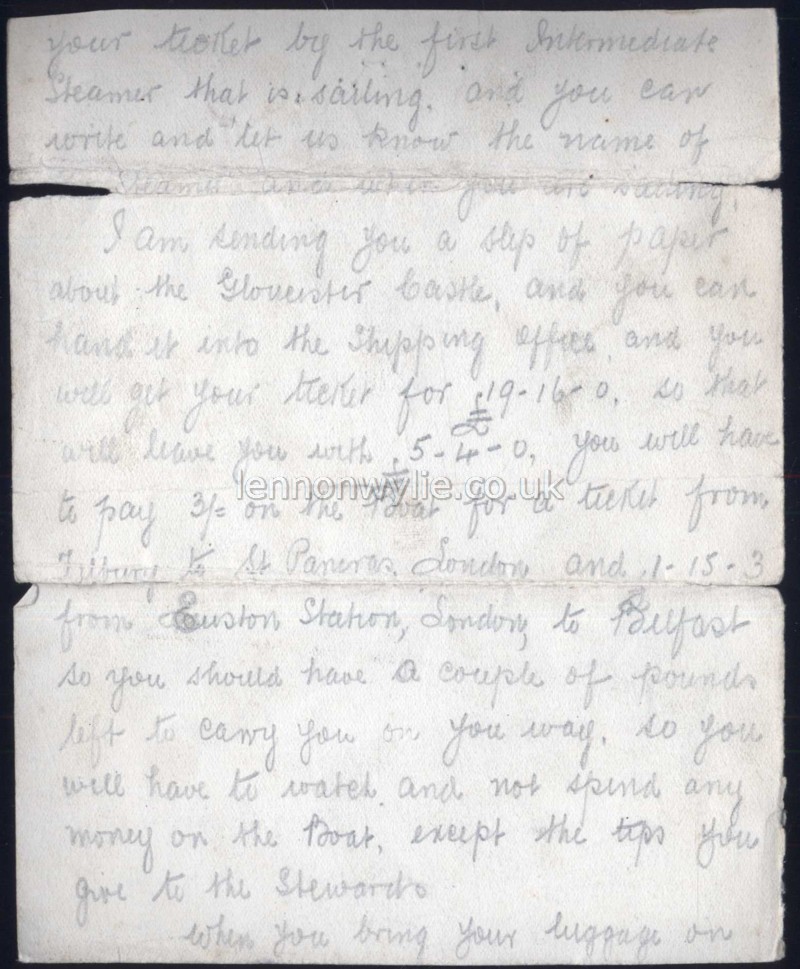 your ticket by the first Intermediate
Steamer that is sailing. and you can
write and let us know the name of
Steamer and when you are sailing.
I am sending you a slip of paper
about the Gloucester Castle, and you can
hand it into the Shipping Office, and you
will get your ticket for £19-16-0. so that
will leave you with £5-4-0, you will have
lennonwylie.co.uk
to pay 3/= on the Boat for a ticket from
Tilbury to St Pancras. London and 1-15-3
from Euston Station, London, to Belfast
so you should have a couple of pounds
left to carry you on you way. so you
will have to watch and not spend any
money on the Boat, except the tips you
give to the Stewards
when you bring your luggage on